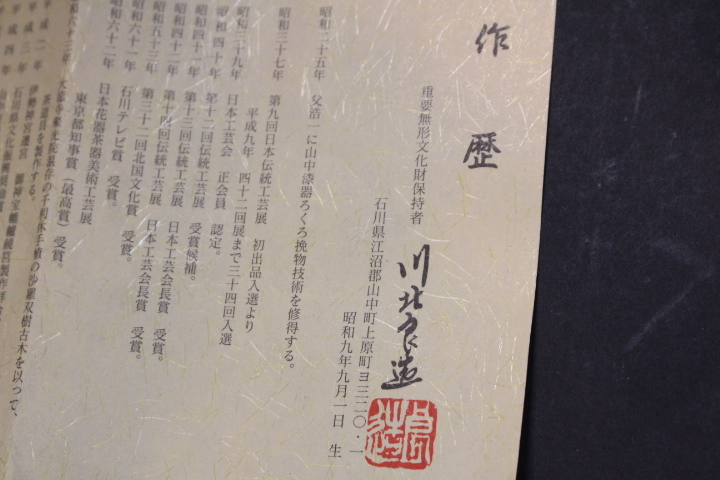 作歴
重要無形文化財保持者
川北良造
石川県江沼郡山中町上原町ヨ三二〇・一
昭和九年九月一日 生
昭和二十五年 父浩一に山中漆器ろくろ挽物技術を修得する。
昭和三十七年 第九回日本伝統工芸展 初出品入選より
平成九年 四十二回展まで三十四回入選
昭和三十九年 日本工芸会 正会員 認定。
昭和四十年 第十二回伝統工芸展 受賞候補。
昭和四十一年 第十三回伝統工芸展 日本工芸会長賞 受賞。
昭和四十二年 第十四回伝統工芸展 日本工芸会長賞 受賞。
昭和五十三年 第三十二回北国文化賞 受賞。
昭和六十一年 石川テレビ賞 受賞。
昭和六十二年 日本花器茶器美術工芸展
東京都知事賞(最高賞)受賞。
六十三年
茶道具を製作する。
平成二年 伊勢神宮遷宮
平成三年 石川県文化振興
平成四年